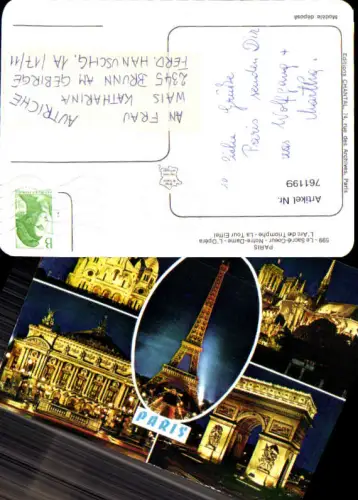 Modèle déposé
Editions CHANTAL, 74, rue des Archives, Paris
AN FRAU
WAIS KATHARINA
FERD. HANUSCHG. 1A /17/11
2345 BRUNN AM GEBIRGE
AUTRICHE
Liebe Grüße
Paris senden Dir
Wolfgang +
Artikel Nr.
761199
PARIS
599 - Le Sacré-Coeur - Notre-Dame - L'Opéra
L'Arc de Triomphe - La Tour Eiffel
B
PARIS